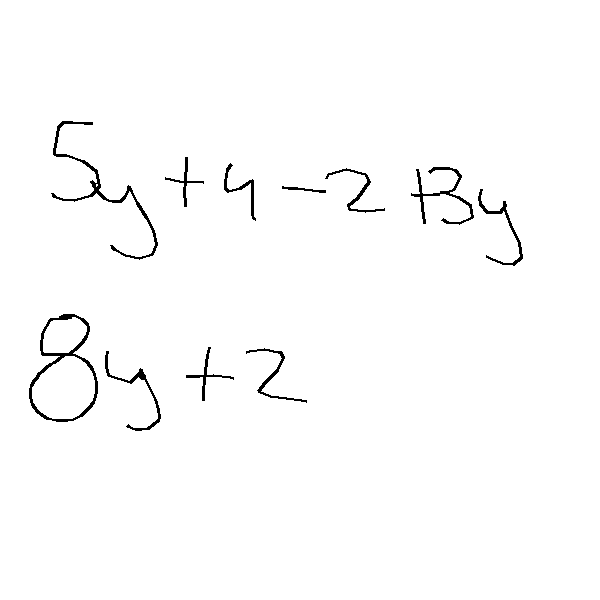 5y + 4 - 2 + 3y
8y + 2